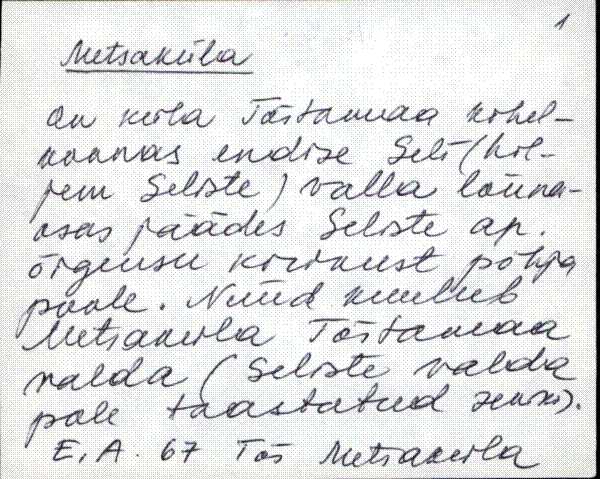 1
Metsaküla
On küla Tõstamaa kihel-
konnas endise Seli (hil-
jem Seliste) valla lõuna-
osas jäädes Seliste ap.
õigeusu kirikust põhja
poole. Nüüd kuulub
Metsaküla Tõstamaa
valda (Seliste valda
pole taastatud seni).
E, A. 67 Tõs Metsaküla